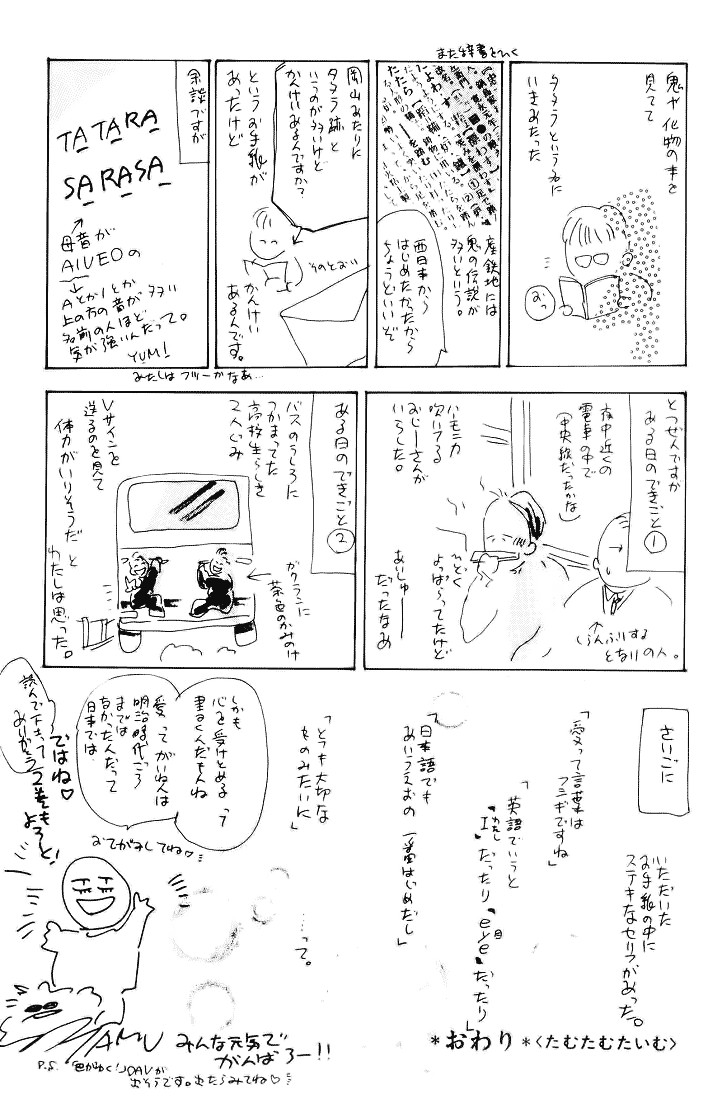 鬼や化物の本を
見てて
タタラという名に
いきあたった
おっ
また辞書をひく
産鉄地には
鬼の伝説が
多いという。
西日本から
はじめたかったから
ちょうどいいぞ
岡山あたりに
タタラ跡と
いうのが多いけど
かんけいあるんですか?
というお手紙が
あったけど
そのとおり
かんけい
あるんです。
余談ですが
TATARA
SARASA
母音が
AIUEOの
AとかIとか
上の方の音が多い
名前の人ほど
気が強いんだって。
YUMI
あたしはフツーかなあ…
とつぜんですが
ある日のできごと①
夜中近くの
電車の中で
(中央線だったかな)
ハモニカ
吹いてる
おじーさんが
いらした。
ひどく
よっぱらってたけど
あいしゅー
だったなあ
しらんふりする
となりの人。
ある日のできごと②
バスのうしろに
つかまってた
高校生らしき
2人ぐみ
ガクランに
茶色のかみのけ
Vサインを
送るのを見て
体力がいりそうだ と
わたしは思った。
さいごに
いただいた
お手紙の中に
ステキなセリフがあった。
「愛って言葉は
フシギですね」
「英語でいうと
"I"だったり"eye"だったり」
わたし
目
「日本語でも
あいうえおの 一番はじめだし」
「とても大切な
ものみたいに」
……って。
しかも
心を受けとめるって
書くんだもんね
愛ってがいねんは
明治時代ごろ
までは
なかったんだって
日本では
おてがみしてね♡
ではね♡
2巻も
よろしく
読んで下さって
ありがとう
TAMU
みんな元気で
がんばろー!!
P.S.
*おわり*<たむたむたいむ>